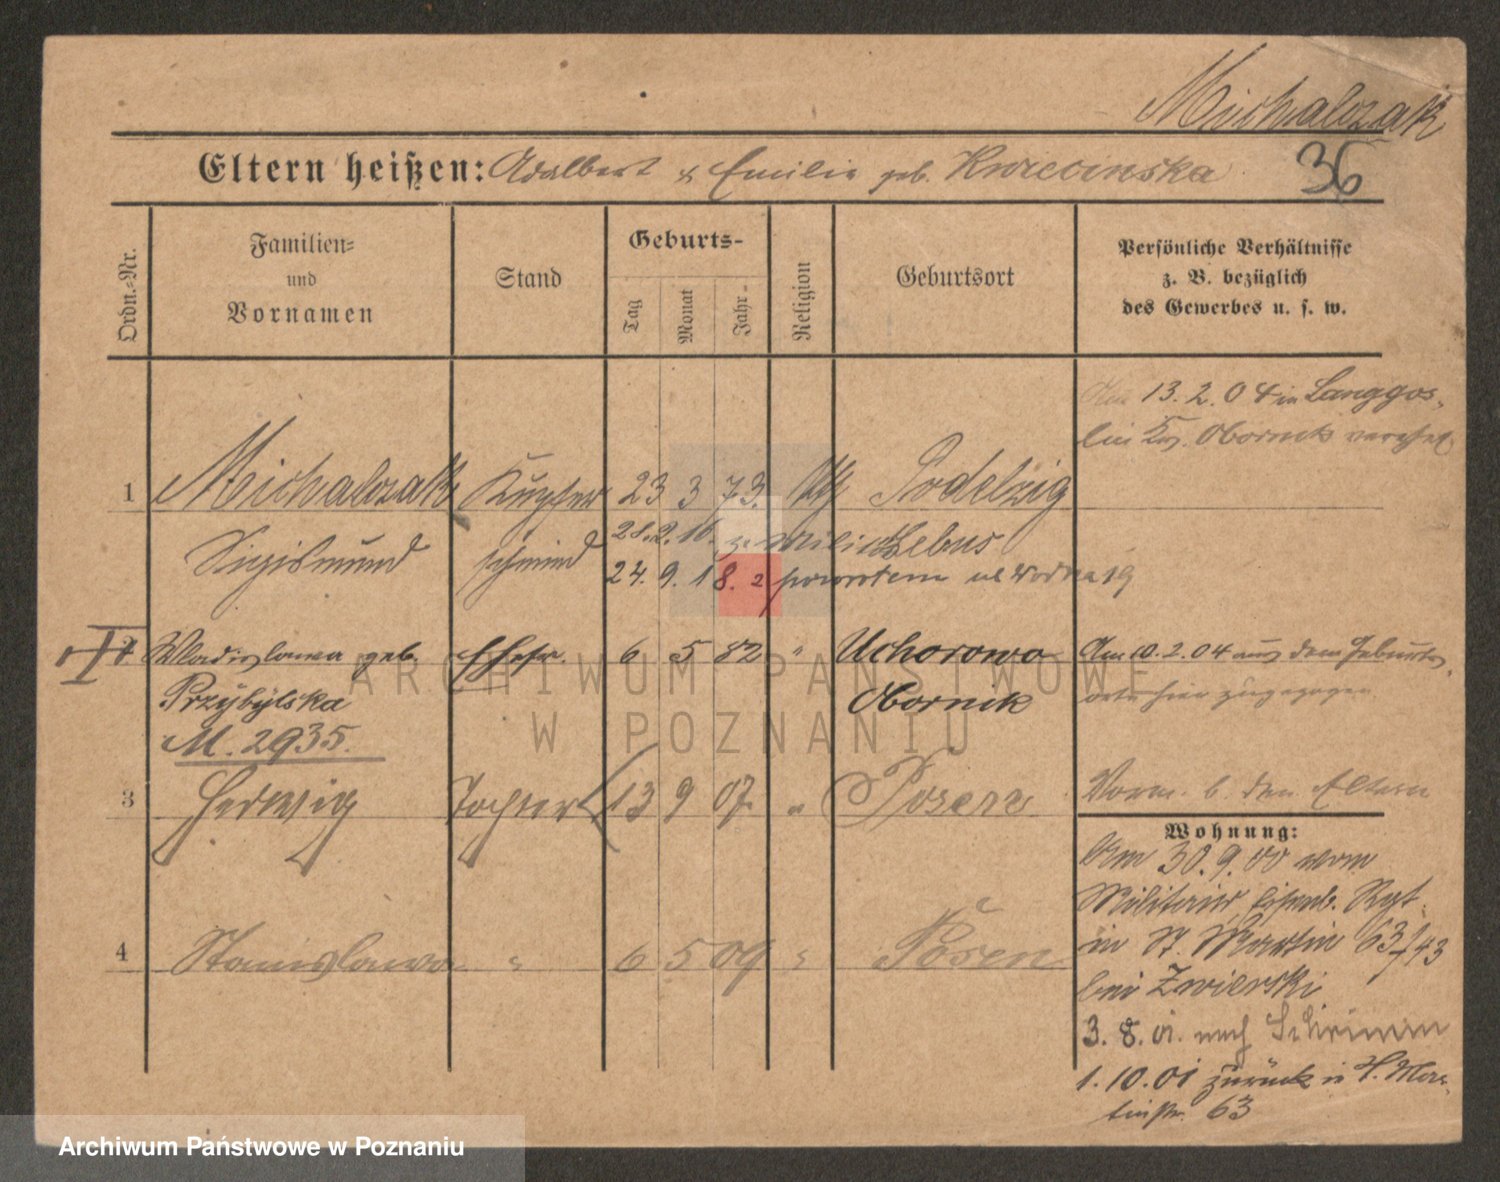 Michalczak
Eltern heißen: Adalbert & Emilie geb. Kwiecinska
36
Ordn.-Nr.
Familien-
und
Vornamen
Stand
Geburts-
Tag
Monat
Jahr-
Religion
Geburtsort
Persönliche Verhältnisse
z. B. bezüglich
des Gewerbes u. s. w.
Am 13.2.04 in Langgos-
lin Krs. Obornik verehel.
1 Michalczak Kupfer 23 3 73. Podelzig
Sigismund schmied 28.2.16. Lebus
24. 9. 18. z powrotem ul Wodna 19
2 Wladislawa geb. Ehefr. 6 5 82 " Uchorowo
Am 10.2.04 aus dem Geburts-
Przybylska Obornik
orte hier zugezogen
M. 2935.
3 Hedwig Tochter 13 9 07 " Posen
Vorm. b. den Eltern
Wohnung:
Am 30.9.00 vom
Militair, Rgt.
in St. Martin 63
bei Zwierski
4 Stanislawa " 6 5 09 " Posen
3. 8. 01. nach Schrimm
1. 10. 01 zurück n St. Mar-
tinstr. 63
ARCHIWUM PAŃSTWOWE
W POZNANIU
Archiwum Państwowe w Poznaniu